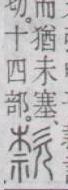 而猶未塞
切。十四部。